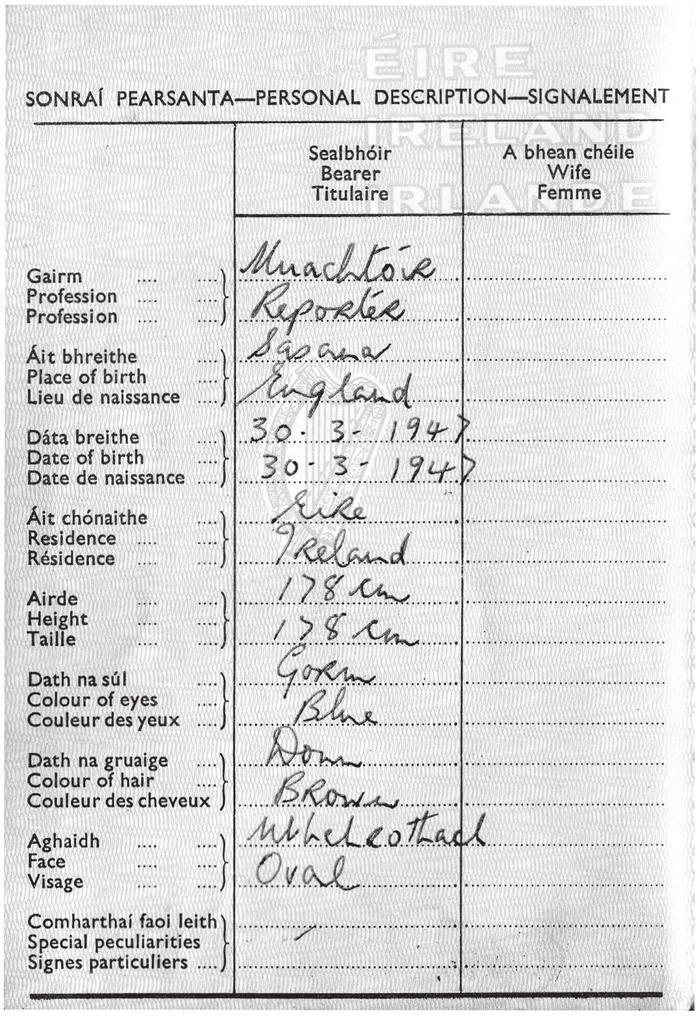 ÉIRE
SONRAÍ PEARSANTA—PERSONAL DESCRIPTION—SIGNALEMENT
IRELAND
IRLANDE
Sealbhóir
Bearer
Titulaire
A bhean chéile
Wife
Femme
Gairm .... .... Nuachtóir
Profession .... ....
Profession .... Reporter
Áit bhreithe .... Sasana
Place of birth ....
Lieu de naissance .... England
Dáta breithe .... 30-3-1947
Date of birth ....
Date de naissance .... 30-3-1947
Áit chónaithe .... Eire
Residence .... ....
Résidence .... .... Ireland
Airde .... .... 178 cm
Height .... ....
Taille .... .... 178 cm
Dath na súl .... Gorm
Colour of eyes ....
Couleur des yeux .... Blue
Dath na gruaige .... Donn
Colour of hair ....
Couleur des cheveux Brown
Aghaidh .... ....
Face .... ....
Visage .... .... Oval
Comharthaí faoi leith
Special peculiarities
Signes particuliers ....